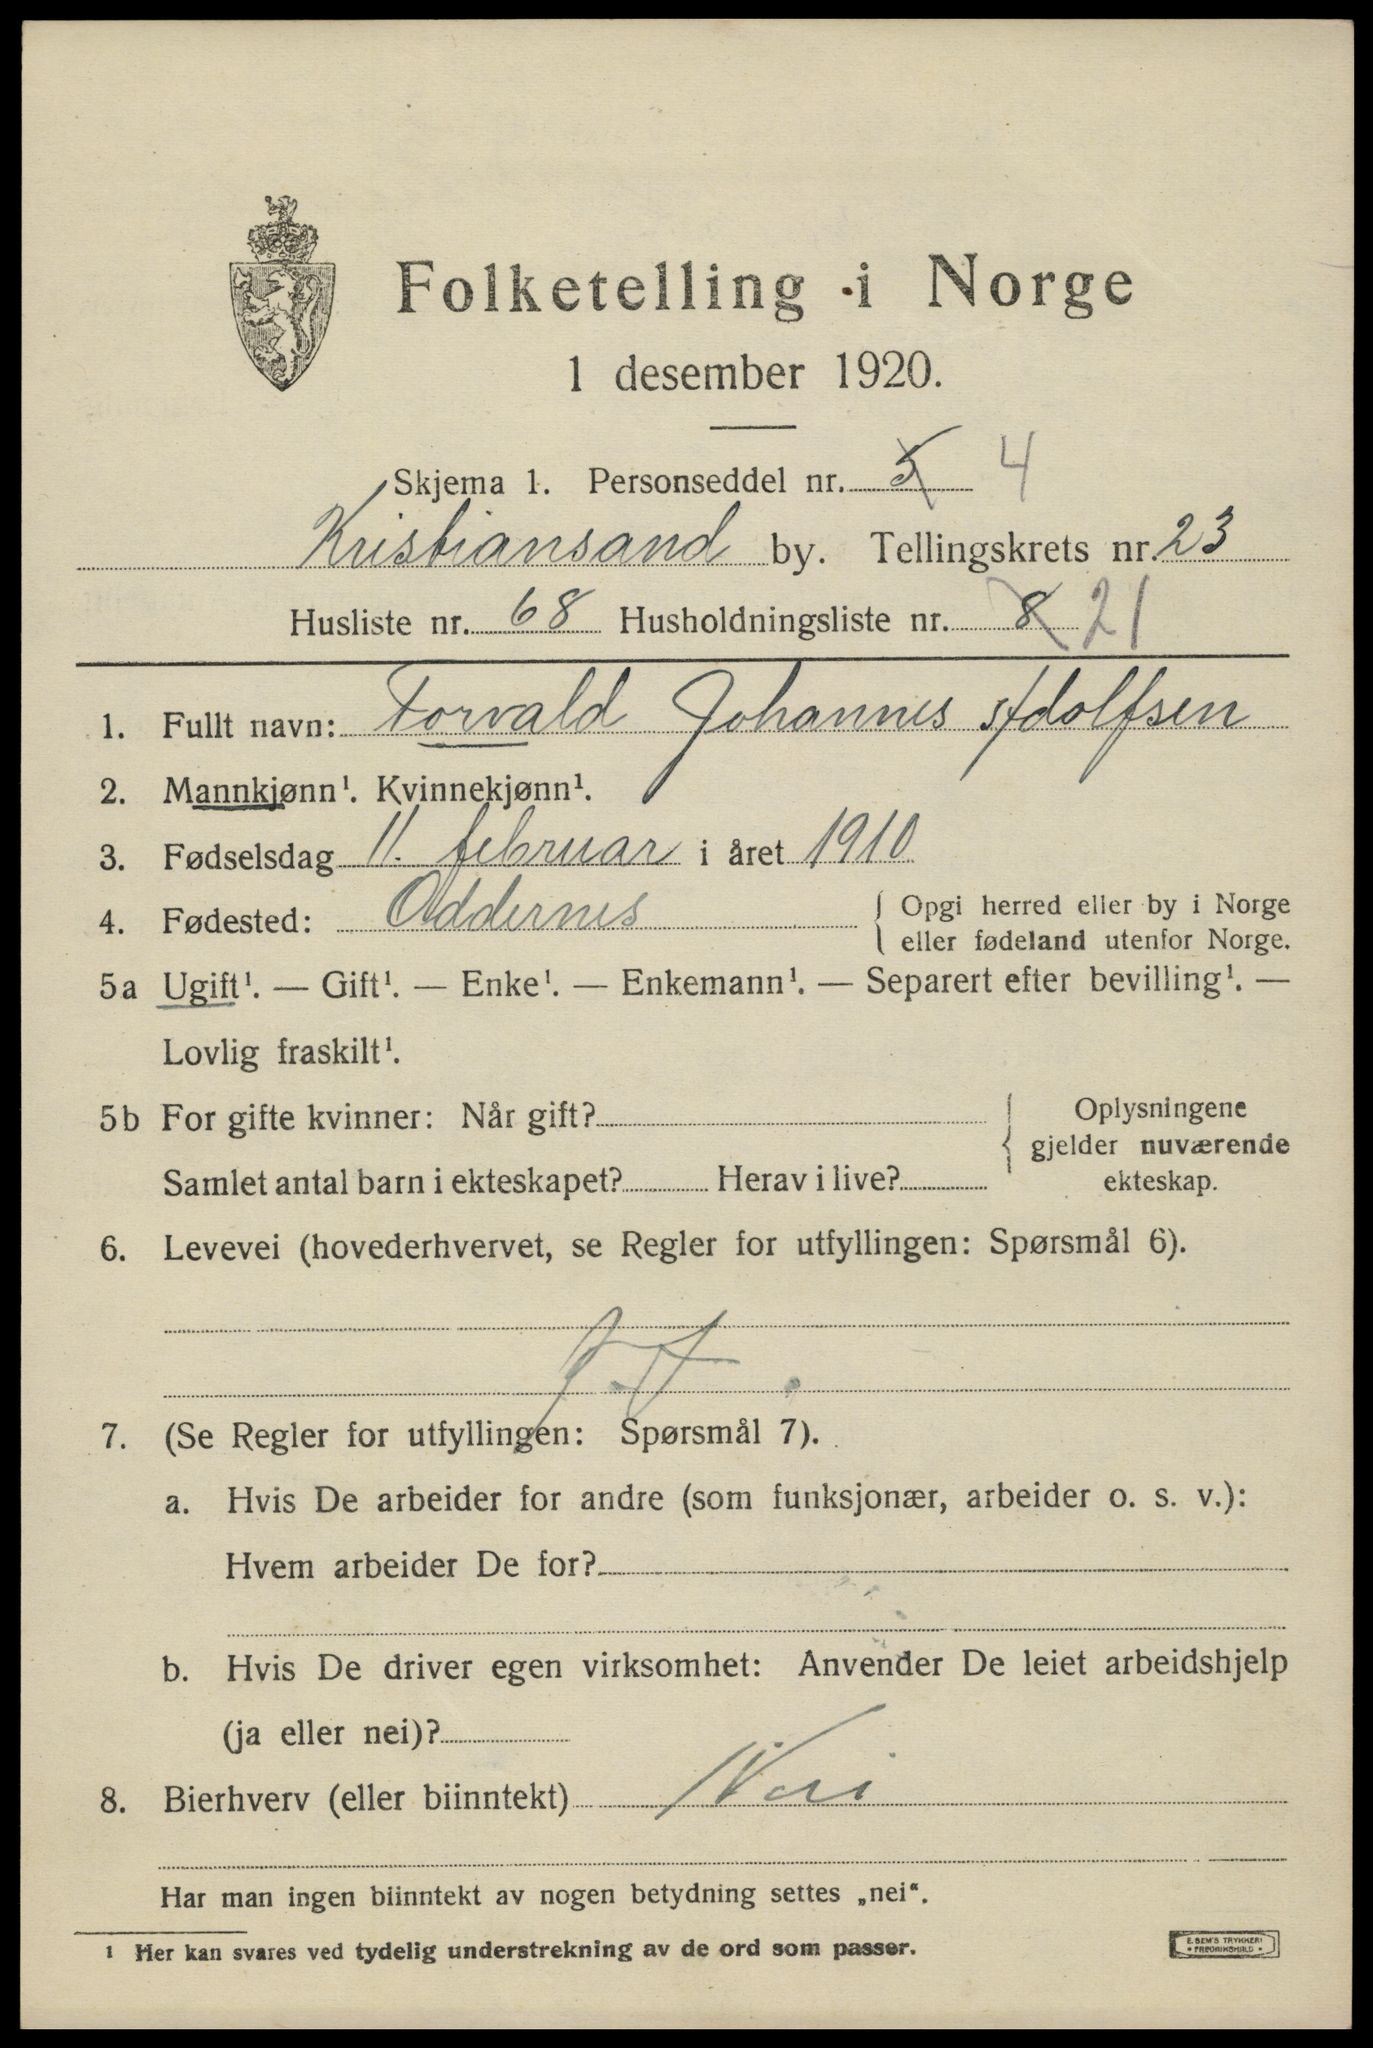 Folketelling i Norge
1 desember 1920.
Skjema 1. Personseddel nr. 5 4
Kristiansand by. Tellingskrets nr. 23
Husliste nr. 68 Husholdningsliste nr. 8 21
1. Fullt navn: Torvald Johannes Adolfsen
2. Mannkjønn¹. Kvinnekjønn¹.
3. Fødselsdag 11. februar i året 1910
4. Fødested: Oddernes { Opgi herred eller by i Norge
eller fødeland utenfor Norge.
5a Ugift¹. — Gift¹. — Enke¹. — Enkemann¹. — Separert efter bevilling¹. —
Lovlig fraskilt¹.
5b For gifte kvinner: Når gift? { Oplysningene
gjelder nuværende
Samlet antal barn i ekteskapet? Herav i live? ekteskap.
6. Levevei (hovederhvervet, se Regler for utfyllingen: Spørsmål 6).
7. (Se Regler for utfyllingen: Spørsmål 7).
a. Hvis De arbeider for andre (som funksjonær, arbeider o. s. v.):
Hvem arbeider De for?
b. Hvis De driver egen virksomhet: Anvender De leiet arbeidshjelp
(ja eller nei)?
8. Bierhverv (eller biinntekt) Nei
Har man ingen biinntekt av nogen betydning settes „nei“.
¹ Her kan svares ved tydelig understrekning av de ord som passer.
E. SEM'S TRYKKERI
• FREDRIKSHALD •